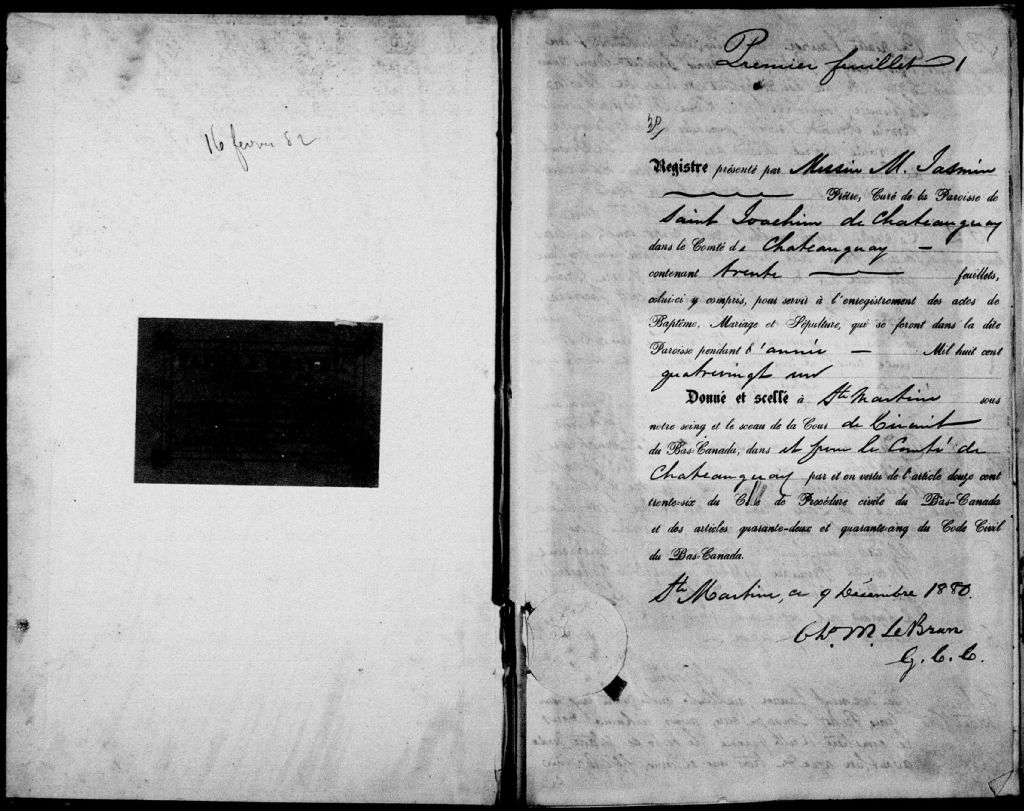 16 fevrier 82
Premier feuillet 1
Registre présenté par Messire M. Jasmin
Prêtre, Curé de la Paroisse de
Saint Joachim de Chateauguay
dans le Comté de Chateauguay —
contenant trente — feuillets,
celui-ci y compris, pour servir à l'enregistrement des actes de
Baptême, Mariage et Sépulture, qui se feront dans la dite
Paroisse pendant l'année — Mil huit cent
quatrevingt un
Donné et scellé à Ste Martine sous
notre seing et le sceau de la Cour de Circuit
du Bas-Canada, dans et pour le Comté de
Chateauguay par et en vertu de l'article douze cent
trente-six du Code de Procédure civile du Bas-Canada
et des articles quarante-deux et quarante-cinq du Code Civil
du Bas-Canada.
Ste Martine, ce 9 Décembre 1880.
Chs. M. LeBrun
G. C. C.